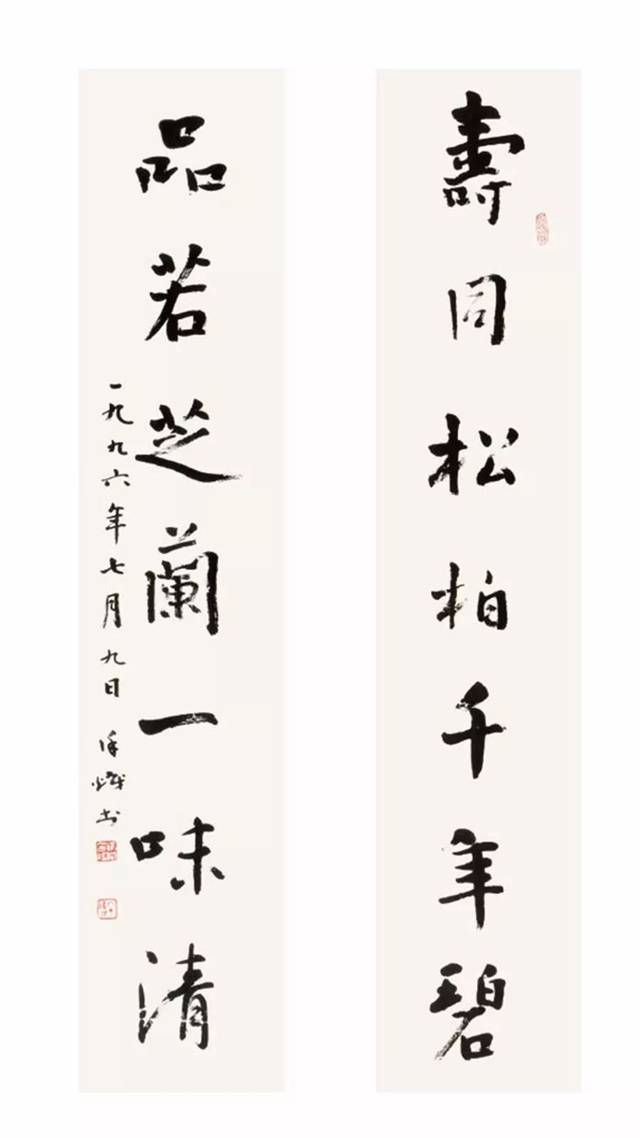 壽同松柏千年碧
品若芝蘭一味清
一九九六年七月九日徐熾书